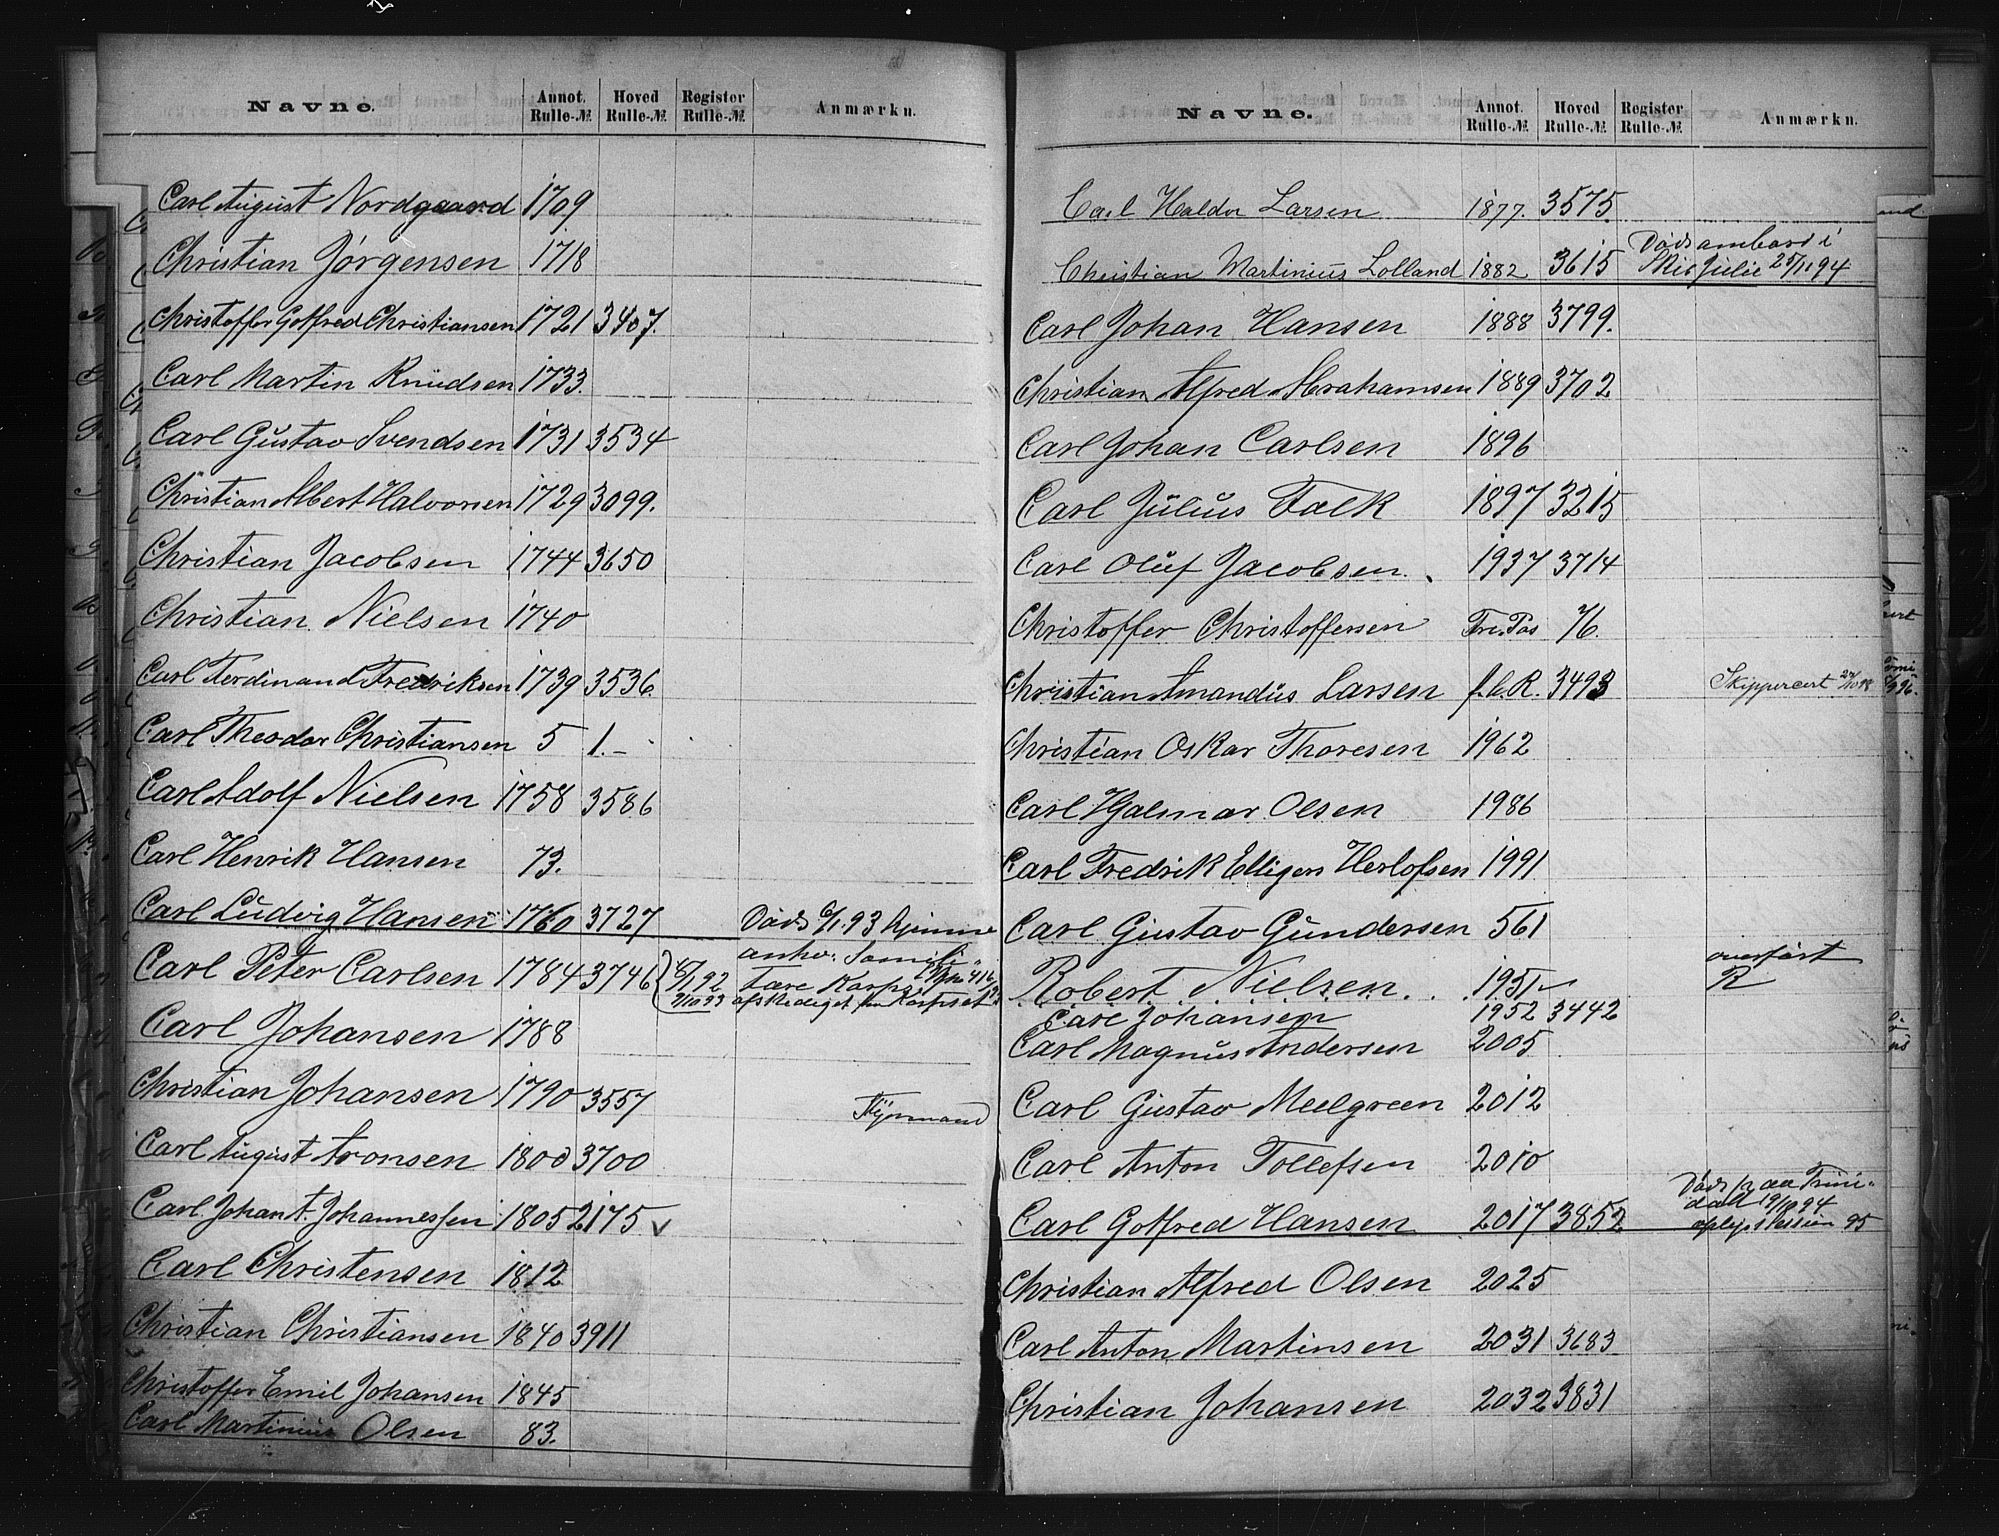 Navne. Annot. Rulle-№ Hoved Rulle-№ Register Rulle-№ Anmærkn.
Carl August Nordgaard 1709
Christian Jörgensen 1718
Christoffer Gotfred Christiansen 1721 3407.
Carl Martin Knudsen 1733.
Carl Gustav Svendsen 1731 3534
Christian Albert Halvorsen 1729 3099.
Christian Jacobsen 1744 3650
Christian Nielsen 1740
Carl Ferdinand Fredriksen 1739 3536.
Carl Theodor Christiansen 5 1.-
Carl Adolf Nielsen 1758 3586
Carl Henrik Hansen 73.
Carl Ludvig Hansen 1760 3727 Död 6/1.93 hjemme
anho. Samili"
Carl Peter Carlsen 1784 3746
Carl Johansen 1788
Christian Johansen 1790 3557
Carl August Aronsen 1800 3700
Carl Johan A. Johannessen 1805 2175 v
Carl Christensen 1812
Christian Christiansen 1840 3911
Christoffer Emil Johansen 1845
Carl Martinius Olsen 83.
Navne. Annot. Rulle-№ Hoved Rulle-№ Register Rulle-№ Anmærkn.
Carl Haldor Larsen 1877. 3575
Död ombord i
Christian Martinius Lolland 1882 3615 Julie 25/11 94
Carl Johan Hansen 1888 3799.
Christian Alfred Abrahamsen 1889 3702
Carl Johan Carlsen 1896
Carl Julius Falk 1897 3215
Carl Oluf Jacobsen. 1937 3714
Christoffer Christoffersen Fre. Pas 76.
Christian Amandus Larsen f.l.R. 3493 Skippercert
Christian Oskar Thoresen 1962
Carl Hjalmar Olsen 1986
Carl Fredrik Elligers Herlofsen 1991
Carl Gustav Gundersen 561
overfört
Robert Nielsen 1951 R
Carl Johansen 1952 3442
Carl Magnus Andersen 2005
Carl Gustav Meelgreen 2012
Carl Anton Tollefsen 2010
Död paa Trini-
dad 19/10 94
Carl Gotfred Hansen 2017 3852 95
Christian Alfred Olsen 2025
Carl Anton Martinsen 2031 3683
Christian Johansen 2032 3831